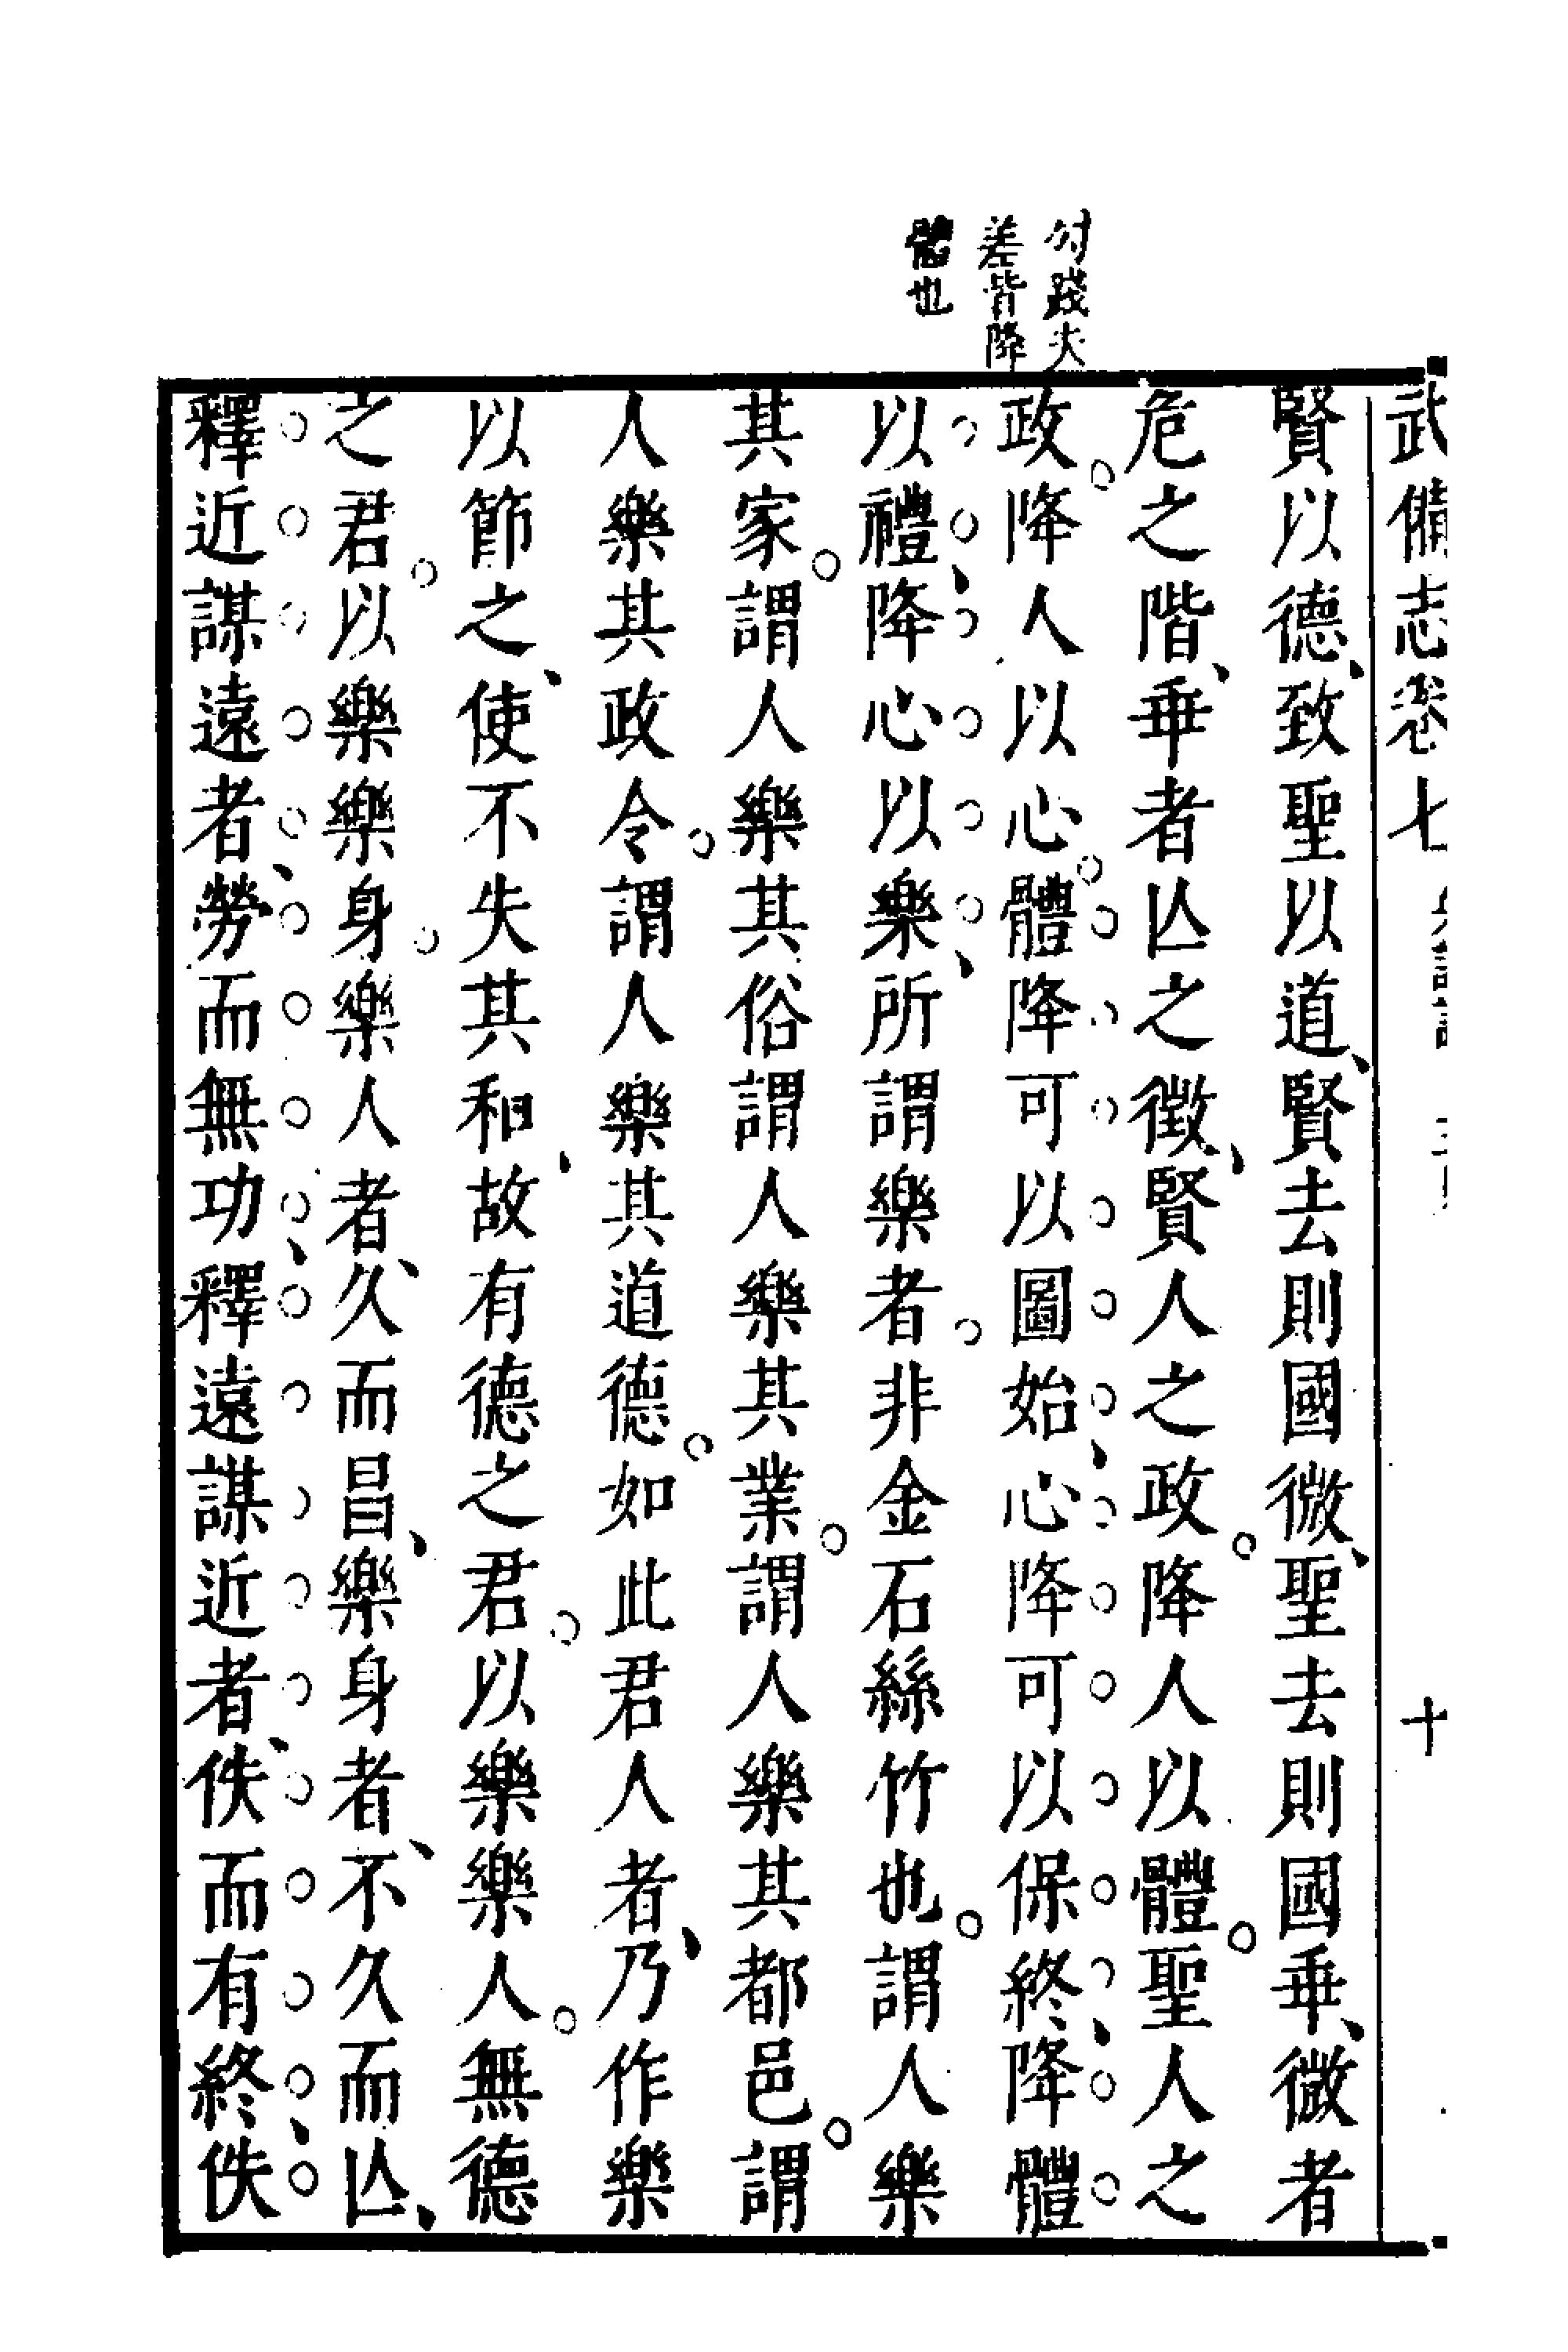 武備志卷七
十
賢以德致聖以道賢去則國微聖去則國乖微者
危之階乖者亾之徵賢人之政降人以體聖人之
政降人以心體降可以圖始心降可以保終降體
以禮降心以樂所謂樂者非金石絲竹也謂人樂
其家謂人樂其俗謂人樂其業謂人樂其都邑謂
人樂其政令謂人樂其道德如此君人者乃作樂
以節之使不失其和故有德之君以樂樂人無德
之君以樂樂身樂人者久而昌樂身者不久而亾
釋近謀遠者勞而無功釋遠謀近者佚而有終佚
勾踐夫
差皆降
體也